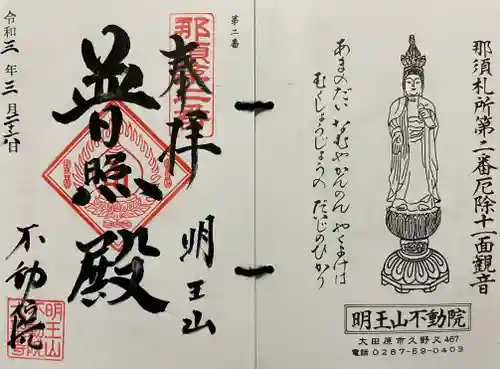 那須札所第二番厄除十一面観音
あまのだい なむやかんのん やくよけは
むくじょうじょうの だいじのひかり
明王山不動院
大田原市久野又467
電話 0287-59-0403
第二番
奉拝
那須第二番
明王山
普照殿
不動院
令和三年三月二十六日
明王山